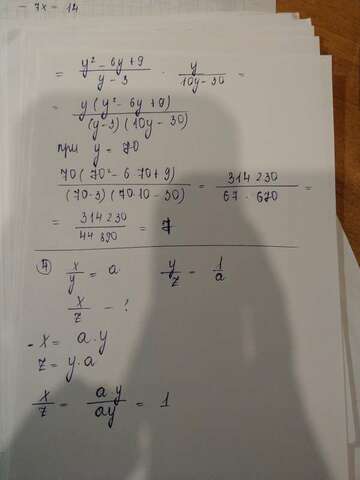 - 7x = 14
= y² - 6y + 9 / y - 3 · y / 10y - 30 =
= y (y² - 6y + 9) / (y-3) (10y - 30)
при y = 70
70 (70² - 6·70 + 9) / (70-3) (70·10 - 30) = 314 230 / 67 · 670 =
= 314 230 / 44 890 = 7
④ x / y = a y / z = 1 / a
x / z - ?
x = a · y
z = y · a
x / z = a y / a y = 1